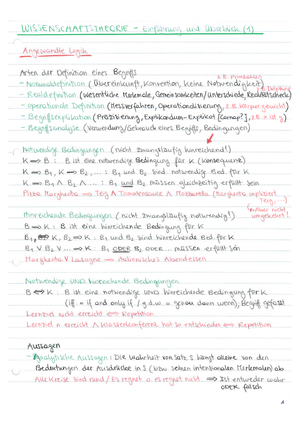 WISSENSCHAFTSTHEORIE - Einführung und Überblick (1)
Angewandte Logik
Arten der Definition eines Begriffs
- Nominaldefinition (Übereinkunft, Konvention, keine Notwendigkeit)
- Realdefinition (wesentliche Merkmale, Gemeinsamkeiten/Unterschiede,
- operationale Definition (Messverfahren, Operationalisierung, z.B. Körpergewicht)
- Begriffsexplikation (Präzisierung, Explikandum - Explikat [Carnap],
- Begriffsanalyse (Verwendung/Gebrauch eines Begriffs, Bedingungen)
Notwendige Bedingungen (nicht zwangsläufig hinreichend!)
K ⟹ B : B ist eine notwendige Bedingung für K (Konsequenz)
K ⟹ B₁, K ⟹ B₂, ... : B₁ und B₂ sind notwendige Bed. für K
K ⟹ B₁ ∧ B₂ ∧ ... : B₁ und B₂ müssen gleichzeitig erfüllt sein
Pizza Margherita ⟹ Teig ∧ Tomatensauce ∧ Mozzarella (Margherita impliziert Teig, ...)
Hinreichende Bedingungen (nicht zwangsläufig notwendig!)
B ⟹ K : B ist eine hinreichende Bedingung für K
B₁ ⟹ K, B₂ ⟹ K : B₁ und B₂ sind hinreichende Bed. für K
B₁ ∨ B₂ ∨ ... ⟹ K : B₁ ODER B₂ ODER ... müssen erfüllt sein
Margherita ∨ Lasagne ⟹ italienisches Abendessen
Notwendige UND hinreichende Bedingungen
B ⟺ K : B ist eine notwendige UND hinreichende Bedingung für K
(iff = if and only if / g.d.w. = genau dann wenn), Begriff gefasst
Lernziel nicht erreicht ⟺ Repetition
Lernziel n. erreicht ∧ Klassenkonferenz hat so entschieden ⟺ Repetition
Aussagen
- Analytische Aussagen: Die Wahrheit von Satz S hängt alleine von den
Bedeutungen der Ausdrücke in S (bzw. seinen intentionalen Merkmalen) ab
Alle Kreise sind rund / Es regnet o. es regnet nicht ⟹ Ist entweder wahr
oder falsch